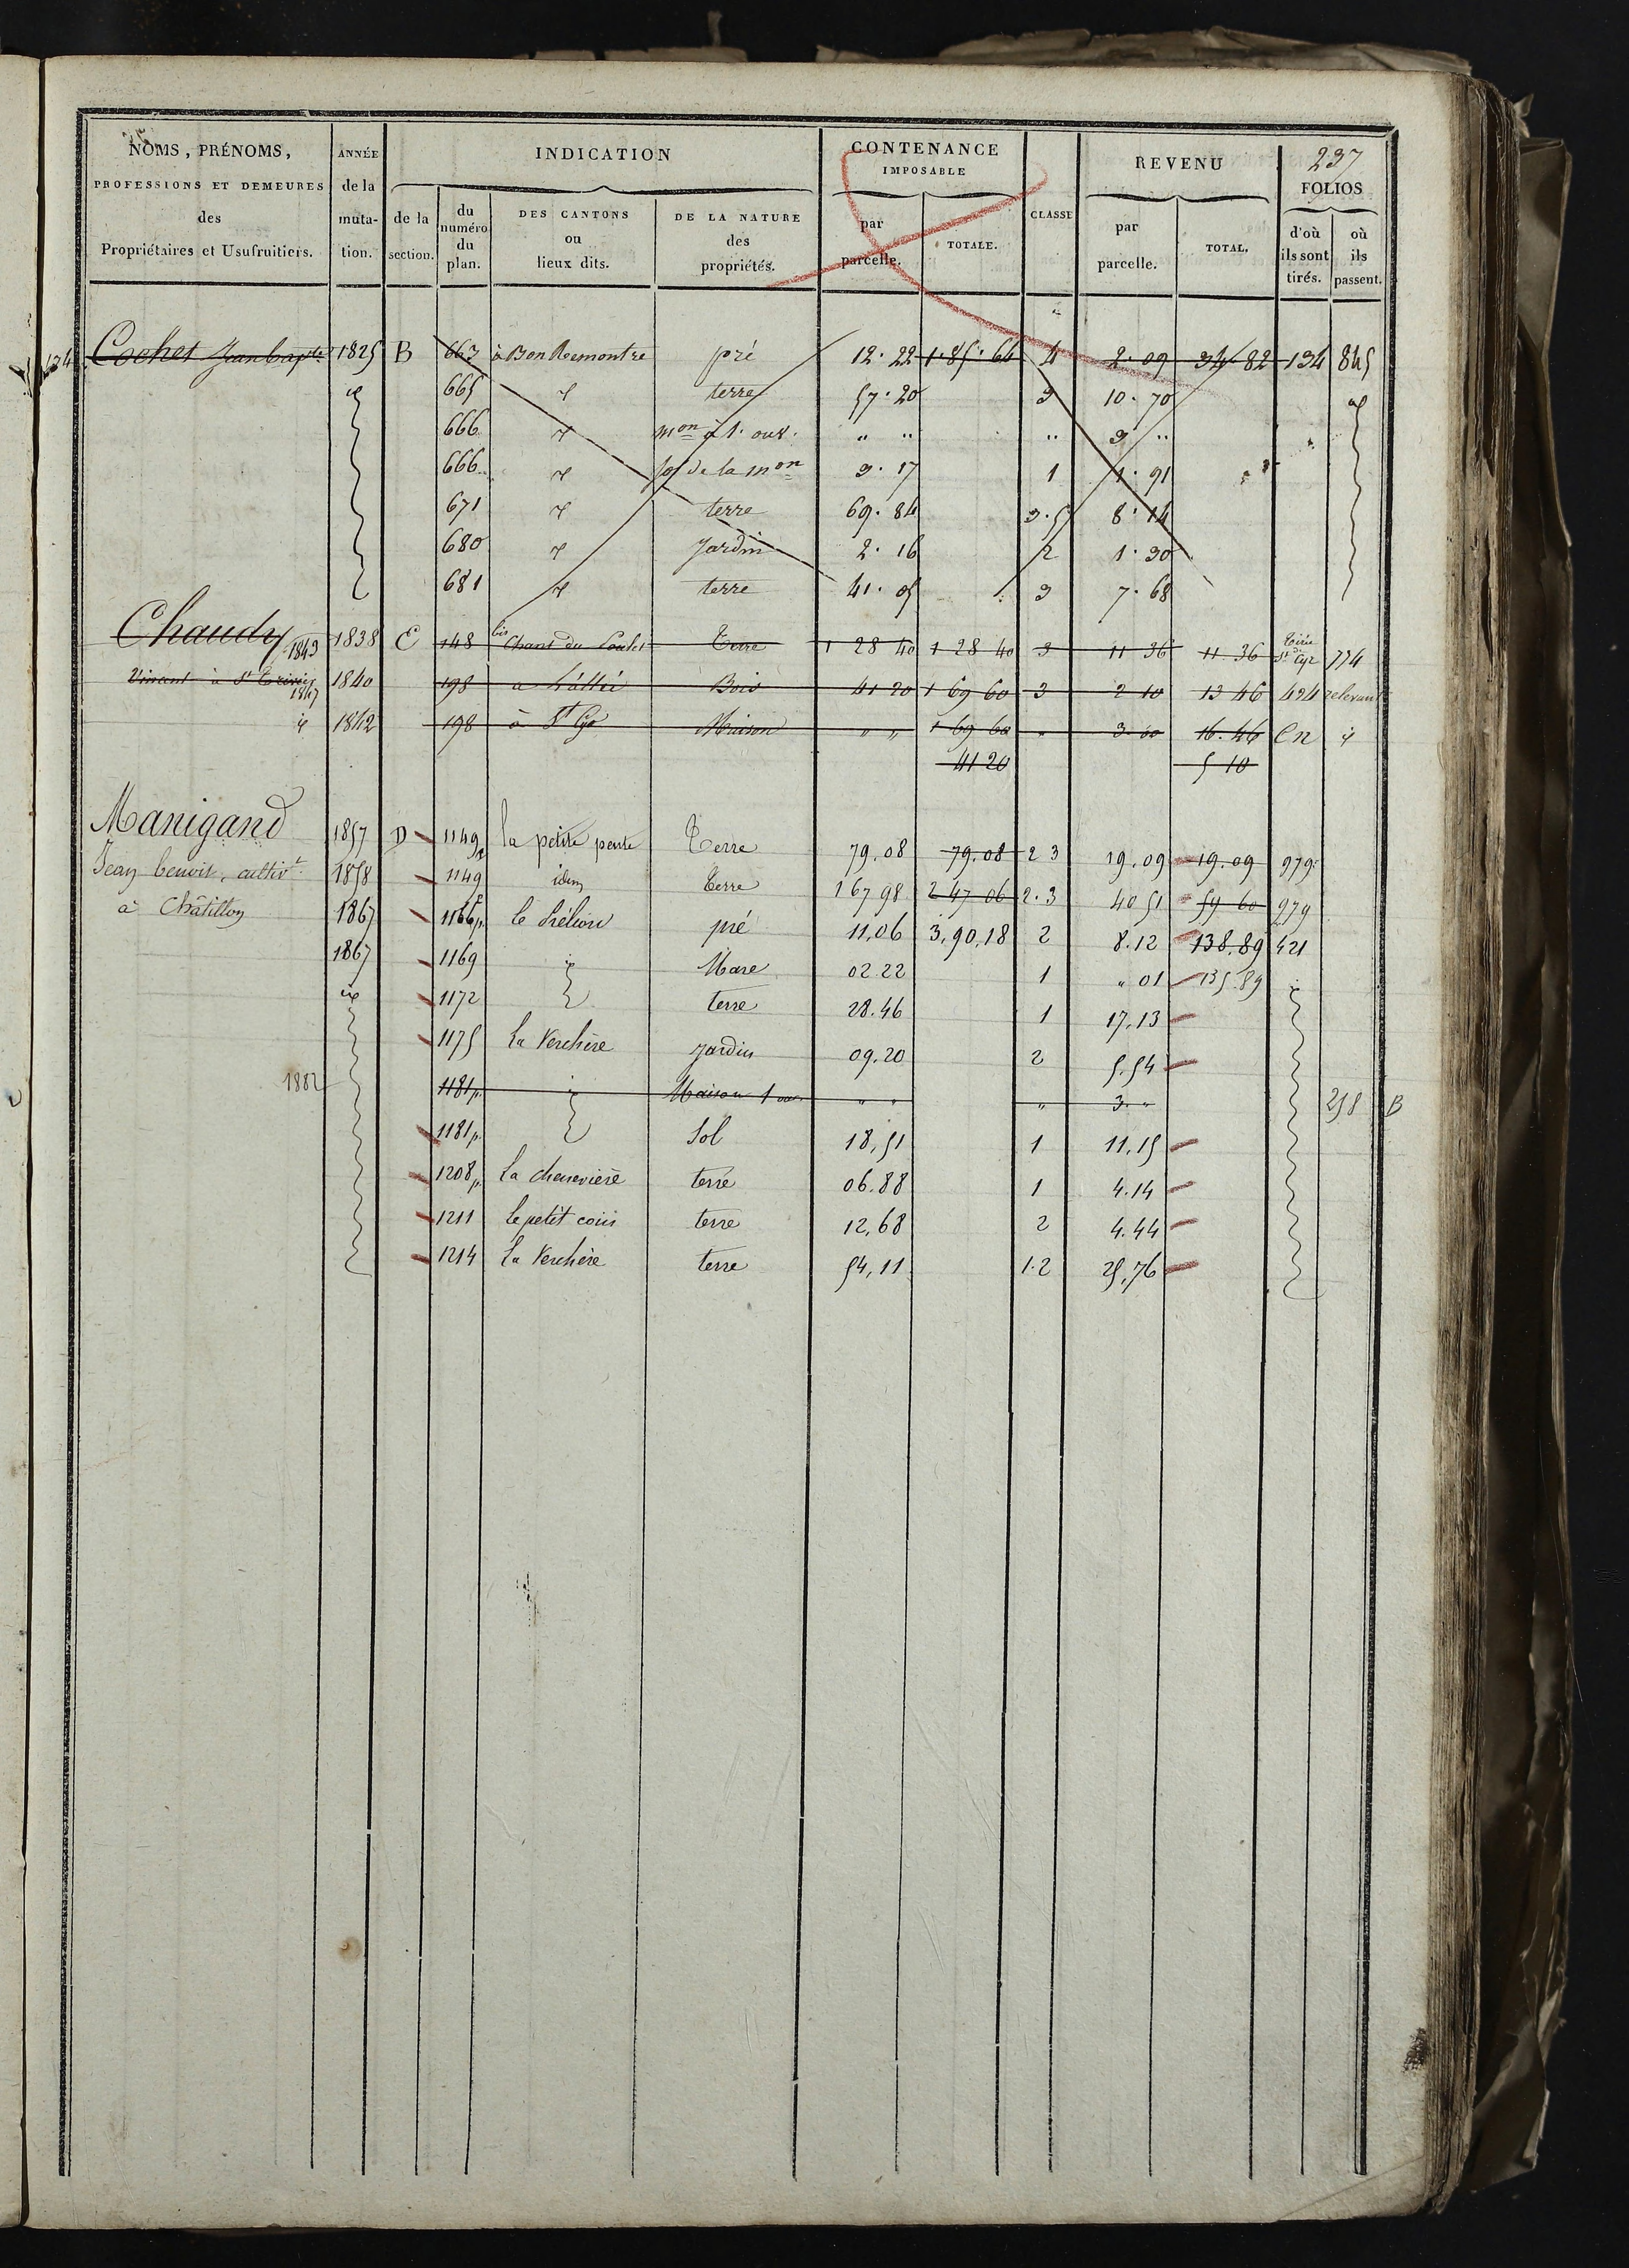 237
NOMS, PRÉNOMS, PROFESSIONS ET DEMEURES des Propriétaires et Usufruitiers.
ANNÉE de la mutation.
INDICATION
de la section.
du numéro du plan.
DES CANTONS ou lieux dits.
DE LA NATURE des propriétés.
CONTENANCE IMPOSABLE
par parcelle.
TOTALE.
CLASSE
REVENU
par parcelle.
TOTAL.
FOLIOS
d'où ils sont tirés.
où ils passent.
134 Cochet Jean bapte 1825 B 663 à Bon Remontre pré 12.22 1.85.64 4 2.09 34.82 134 845
id 665 id terre 57.20 3 10.70 id
666 id mon à 1. ouv. " " " 3 "
666 id sol de la mon 3.17 1 1.91
671 id terre 69.84 3.5 8.14
680 id Jardin 2.16 2 1.30
681 id terre 41.05 3 7.68
Chaudy 1843 1838 E 148 bis Chant du Terre 1 28 40 1 28 40 3 11 36 11.36 Tirée de St Cyr 774
Vincent à St 1847 1840 198 a Bois 41 20 1 69 60 3 2 10 13 46 494
id 1842 198 à St Cyr Maison " " 1 69 60 " 3.00 16.46 Cn id
41 20 5 10
Manigand 1857 D 1149p la petite pente Terre 79.08 79.08 2 3 19.09 19.09 979
Jean benoit, cultivt 1858 1149 idem terre 167 98 2 47 06 2.3 40 51 59 60 979
à Châtillon 1867 1166p. le pré 11,06 3,90,18 2 8.12 138.89 421
1867 1169 id Mare 02 22 1 " 01 135.89 id
id 1172 terre 28.46 1 17,13
1175 La Verchère Jardin 09.20 2 5.54
1882 1181p. id Maison 1 ouv " " " 3. " 258 B
1181p. Sol 18,51 1 11,15
1208p. La chenevière terre 06.88 1 4.14
1211 le petit terre 12,68 2 4.44
1214 La Verchère terre 54,11 1.2 25,76